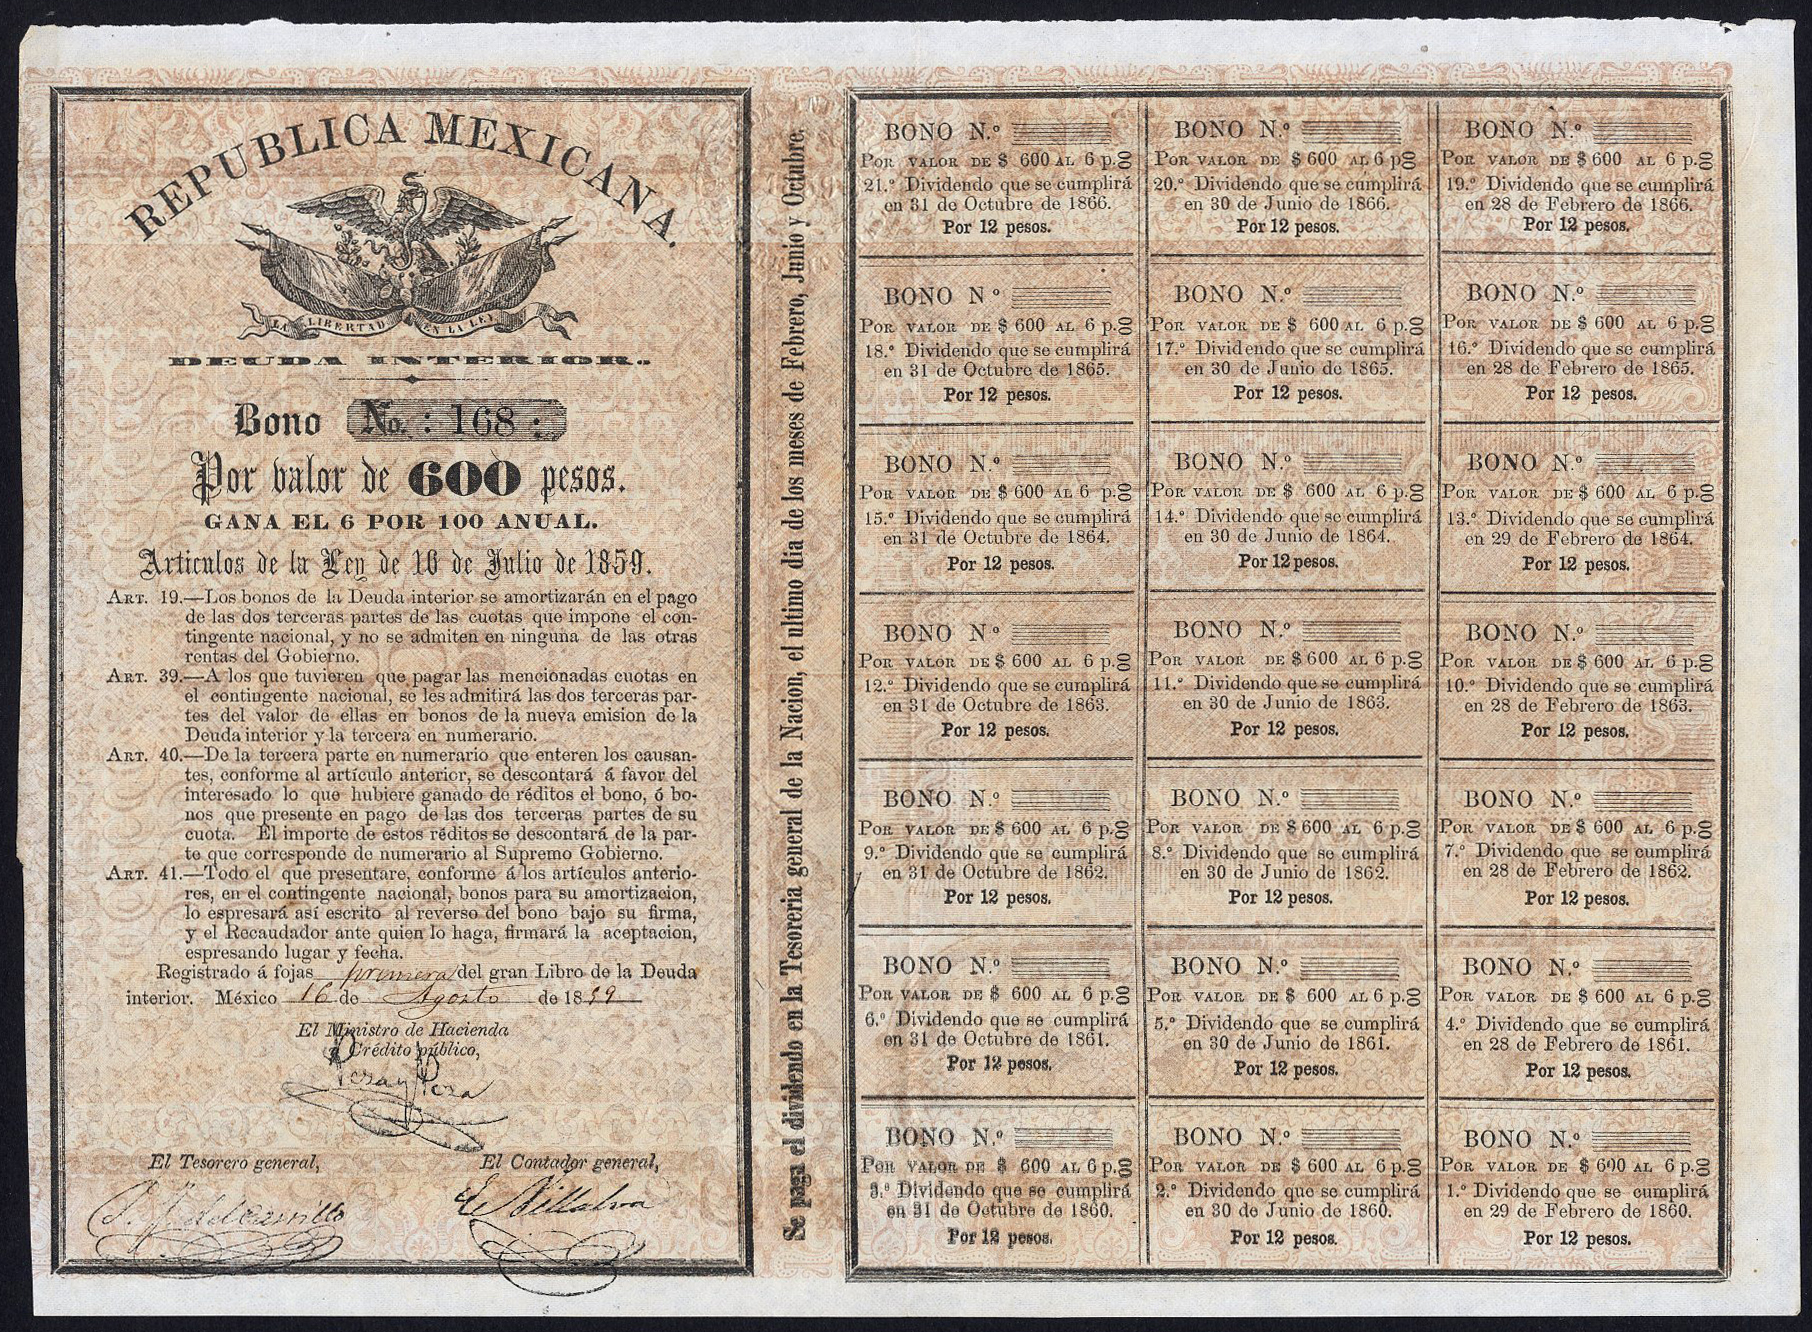 REPUBLICA MEXICANA.
LA LIBERTAD EN LA LEY
DEUDA INTERIOR.
Bono No. : 168 :
Por valor de 600 pesos.
GANA EL 6 POR 100 ANUAL.
Articulos de la Ley de 16 de Julio de 1859.
ART. 19.—Los bonos de la Deuda interior se amortizarán en el pago
de las dos terceras partes de las cuotas que impone el con-
tingente nacional, y no se admiten en ninguna de las otras
rentas del Gobierno.
ART. 39.—A los que tuvieren que pagar las mencionadas cuotas en
el contingente nacional, se les admitirá las dos terceras par-
tes del valor de ellas en bonos de la nueva emision de la
Deuda interior y la tercera en numerario.
ART. 40.—De la tercera parte en numerario que enteren los causan-
tes, conforme al artículo anterior, se descontará á favor del
interesado lo que hubiere ganado de réditos el bono, ó bo-
nos que presente en pago de las dos terceras partes de su
cuota. El importe de estos réditos se descontará de la par-
te que corresponde de numerario al Supremo Gobierno.
ART. 41.—Todo el que presentare, conforme á los artículos anterio-
res, en el contingente nacional, bonos para su amortizacion,
lo espresará así escrito al reverso del bono bajo su firma,
y el Recaudador ante quien lo haga, firmará la aceptacion,
espresando lugar y fecha.
Registrado á fojas primera del gran Libro de la Deuda
interior. México 16 de Agosto de 1859
El Ministro de Hacienda
y Crédito público,
El Tesorero general,
El Contador general,
Se paga el dividendo en la Tesoreria general de la Nacion, el ultimo dia de los meses de Febrero, Junio y Octubre.
BONO N.º
POR VALOR DE $ 600 AL 6 p.00
21.º Dividendo que se cumplirá
en 31 de Octubre de 1866.
Por 12 pesos.
BONO N.º
POR VALOR DE $ 600 AL 6 p00
20.º Dividendo que se cumplirá
en 30 de Junio de 1866.
Por 12 pesos.
BONO N.º
POR VALOR DE $ 600 AL 6 p.00
19.º Dividendo que se cumplirá
en 28 de Febrero de 1866.
Por 12 pesos.
BONO Nº
POR VALOR DE $ 600 AL 6 p.00
18.º Dividendo que se cumplirá
en 31 de Octubre de 1865.
Por 12 pesos.
BONO N.º
POR VALOR DE $ 600 AL 6 p.00
17.º Dividendo que se cumplirá
en 30 de Junio de 1865.
Por 12 pesos.
BONO N.º
POR VALOR DE $ 600 AL 6 p.00
16.º Dividendo que se cumplirá
en 28 de Febrero de 1865.
Por 12 pesos.
BONO N.º
POR VALOR DE $ 600 AL 6 p.00
15.º Dividendo que se cumplirá
en 31 de Octubre de 1864.
Por 12 pesos.
BONO N.º
POR VALOR DE $ 600 AL 6 p.00
14.º Dividendo que se cumplirá
en 30 de Junio de 1864.
Por 12 pesos.
BONO N.º
POR VALOR DE $ 600 AL 6 p.00
13.º Dividendo que se cumplirá
en 29 de Febrero de 1864.
Por 12 pesos.
BONO Nº
POR VALOR DE $ 600 AL 6 p.00
12.º Dividendo que se cumplirá
en 31 de Octubre de 1863.
Por 12 pesos.
BONO N.º
POR VALOR DE $ 600 AL 6 p.00
11.º Dividendo que se cumplirá
en 30 de Junio de 1863.
Por 12 pesos.
BONO N.º
POR VALOR DE $ 600 AL 6 p.00
10.º Dividendo que se cumplirá
en 28 de Febrero de 1863.
Por 12 pesos.
BONO N.º
POR VALOR DE $ 600 AL 6 p.00
9.º Dividendo que se cumplirá
en 31 de Octubre de 1862.
Por 12 pesos.
BONO N.º
POR VALOR DE $ 600 AL 6 p.00
8.º Dividendo que se cumplirá
en 30 de Junio de 1862.
Por 12 pesos.
BONO N.º
POR VALOR DE $ 600 AL 6 p.00
7.º Dividendo que se cumplirá
en 28 de Febrero de 1862.
Por 12 pesos.
BONO N.º
POR VALOR DE $ 600 AL 6 p.00
6.º Dividendo que se cumplirá
en 31 de Octubre de 1861.
Por 12 pesos.
BONO N.º
POR VALOR DE $ 600 AL 6 p.00
5.º Dividendo que se cumplirá
en 30 de Junio de 1861.
Por 12 pesos.
BONO N.º
POR VALOR DE $ 600 AL 6 p.00
4.º Dividendo que se cumplirá
en 28 de Febrero de 1861.
Por 12 pesos.
BONO N.º
POR VALOR DE $ 600 AL 6 p.00
3.º Dividendo que se cumplirá
en 31 de Octubre de 1860.
Por 12 pesos.
BONO N.º
POR VALOR DE $ 600 AL 6 p.00
2.º Dividendo que se cumplirá
en 30 de Junio de 1860.
Por 12 pesos.
BONO N.º
POR VALOR DE $ 600 AL 6 p.00
1.º Dividendo que se cumplirá
en 29 de Febrero de 1860.
Por 12 pesos.